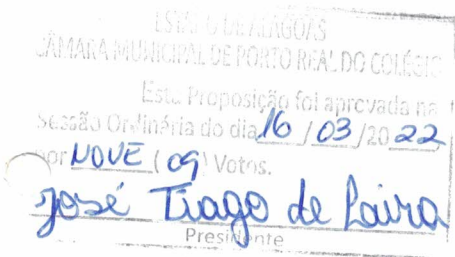 ESTADO DE ALAGOAS
CÂMARA MUNICIPAL DE PORTO REAL DO COLÉGIO
Esta Proposição foi aprovada na
Sessão Ordinária do dia 16 / 03 /20 22
por NOVE ( 09 ) Votos.
José Tiago de
Presidente